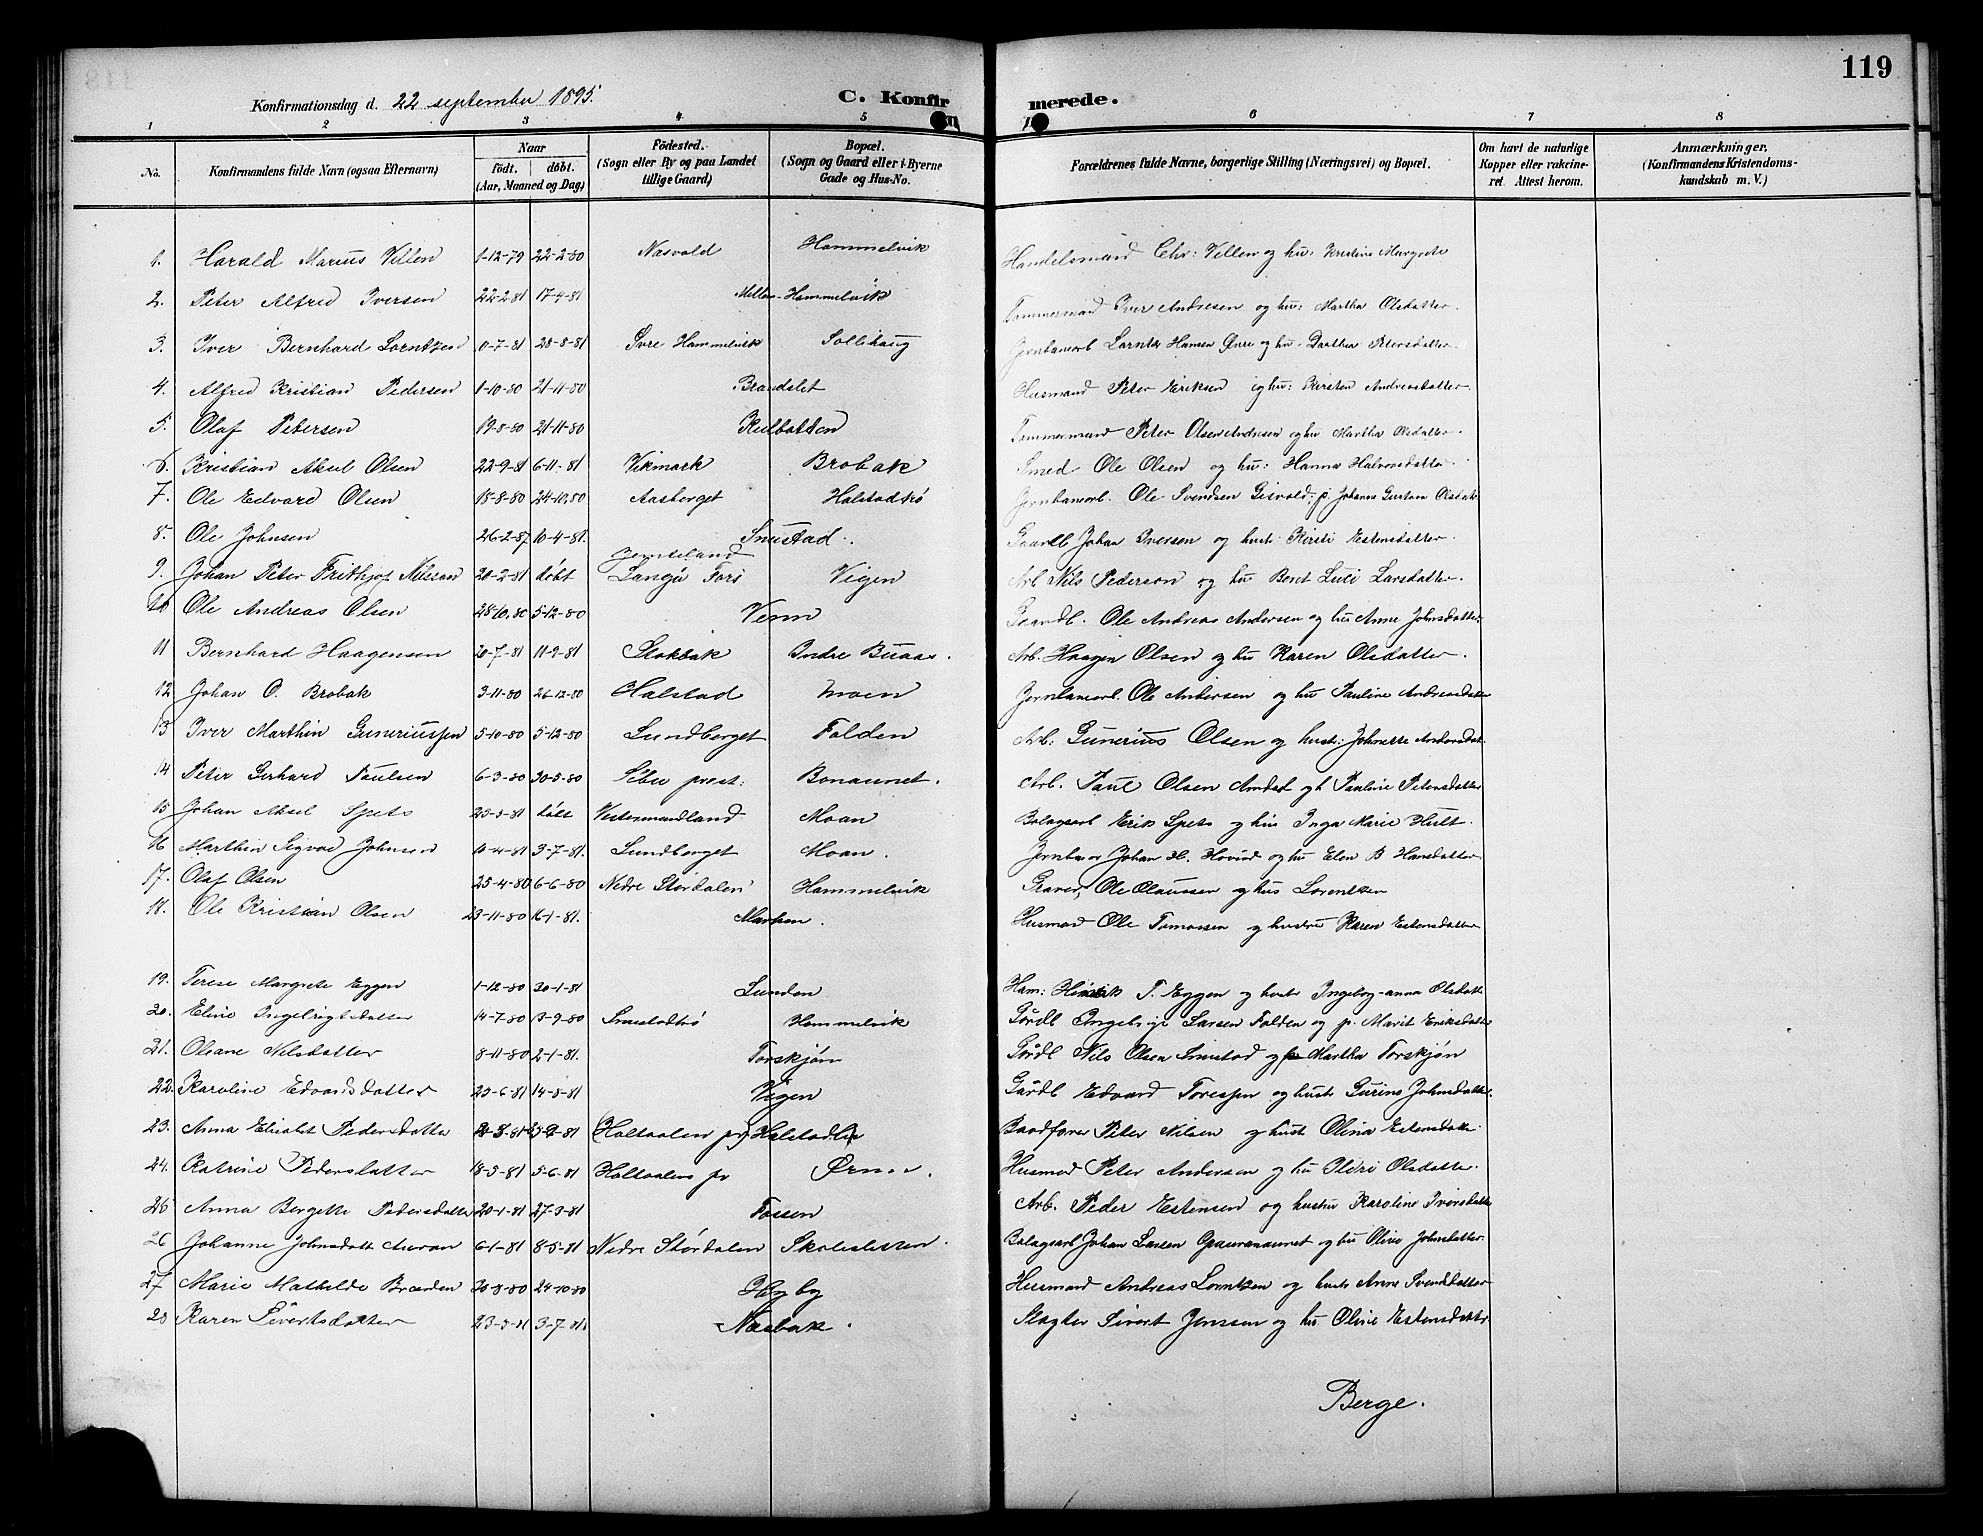 119
Konfirmationsdag d. 22 september 1895.
C. Konfirmerede.
1 2 3 4 5 6 7 8
No. Konfirmandens fulde Navn (ogsaa Efternavn) Naar født. døbt. (Aar, Maaned og Dag) Fødested. (Sogn eller By og paa Landet tillige Gaard) Bopæl. (Sogn og Gaard eller i Byerne Gade og Hus-No. Forældrenes fulde Navne, borgerlige Stilling (Næringsvei) og Bopæl. Om havt de naturlige Kopper eller vakcineret Attest herom. Anmærkninger. (Konfirmandens Kristendomskundskab m. V.)
1. Harald Marius Villen 1-12-79 22-2-80 Næsvold Hommelvik Handelsmand Chr: Villen og hu: Kristine Margrete
2. Peter Alfred Iversen 22-2-81 17-4-81 Hommelvik Tømmermand Iver Andresen og hu: Martha Olsdatter.
3. Iver Bernhard Lorntzen 0-7-81 28-8-81 Svre Hammelvik Sollihaug Jernbanearb Lorntz Hansen og hu. Dorthea Petersdatter
4. Alfred Kristian Pedersen 1-10-80 21-11-80 Brandslet Husmand Peter Eriksen og hu: Kirsten Andreasdatter.
5. Olaf Petersen 19-8-80 21-11-80 Kulbotten Tømmermand Peter Olsen Andresen og hu Martha Olsdatter.
6. Kristian Aksel Olsen 22-9-81 6-11-81 Vikmark Brobak Smed Ole Olsen og hu: Hanna Halvorsdatter.
7. Ole Edvard Olsen 18-8-80 24-10,80 Aasberget Halstadlø Jernbanearb. Ole Svendsen p. Johanna Gustava Olsdat
8. Ole Johnsen 26-2-87 10-4-81. Snustad. Gaardb Johan Iversen og hust: Kirsti Estensdatter.
9. Johan Peter Frithjof Nilssen 20-2-81 døbt Jemteland Langø Fors Vigen Arb Nils Pederson og hu Beret Luci Larsdatter.
10 Ole Andreas Olsen 28-10,80 5-12-80 Venn Gaardb. Ole Andreas Andersen og hu Anne Johnsdatter
11 Bernhard Haagensen 20-7-81 11-9-81 Stokbak Indre Buaas. Arb. Haagen Olsen og hu Karen Olsdatter.
12 Johan O. Brobak 3-11-80 26-12-80 Halstad Moen Jernbanearb. Ole Andersen og hu Pauline Andreasdatte
13 Iver Marthin Guneriussen 5-10-80 5-12-80 Lundberget Folden Arb: Gunerius Olsen og hust: Johnette Andersdat.
14 Peter Gerhard Paulsen 6-3-80 30-5-80 Sibu prest. Bonaunet. Arb. Paul Olsen Pauline Petersdatter
15 Johan Aksel Spets 25-3-81 døbt Vestermandland Moan Bolagsarb Erik Spets og hu Inga Marie Hult.
16 Marthin Sigvod Johnsen 10-4-81 3-7-81. Lundberget Moan. Johan H. Hovind og hu Elen B Hansdatter
17. Olaf Olsen 25-4-80 6-6-80 Nedre Størdalen Hammelvik Graver, Ole Olaussen og hus Lorentzen
18. Ole Kristian Olsen 23-11-80 16-1-81. Marken. Husmad Ole Tomassen og hustru Karen Estensdatter
19. Terese Margrete Eggen 1-12-80 30-1-81 Lunden Ham: Hinrik T. Eggen og hustr Ingebog-anna Olsdatt
20. Eline Ingebrigtsdatter 14-7-80 3-9-80 Snustadlø Hommelvik Gårdb Ingebrigt Larsen Folden og p. Marit Eriksdatter
21. Olsane Nilsdatter 8-11-80 2-1-81. Torskjøn Gårdb Nils Olsen Snustad og Martha Torskjøn
22. Karoline Edvardsdatter 25-6-81 14-8-81 Vigen Gårdb Edvard Toressen og hustr Gurine Johnsdatter.
23. Anna Elisabet Pedersdatter Holtaalen pr Banefører Peter Nilsen og hust Olina Estensdatte.
24. Katrine Pedersdatter 18-3-81 5-6-81 Holtaalens pr Husmad Peter Andersen og hu Ildri Olsdatter.
26 Anna Bergette Pedersdatter 20-1-81 27-3-81 Fossen Arb. Peder Estensen og hustru Karoline Iversdatte
26 Johanne Johnsdatt Auran 6-1-81 8-5-81 Nedre Størdalen Skolestuen. Bolagsarb Johan Larsen og hu Oline Johnsdatter.
27 Marie Mathilde Bræden 20-8-80 24-10-80 Høyby Husmand Andreas Lorntzen og hustr Anne Svendsdatter
28 Karen Sivertsdatter 23-3-81 3-7-81. Næsbak. Slagter Sivert Jenssen og hu Oline Estensdatter
Berge.